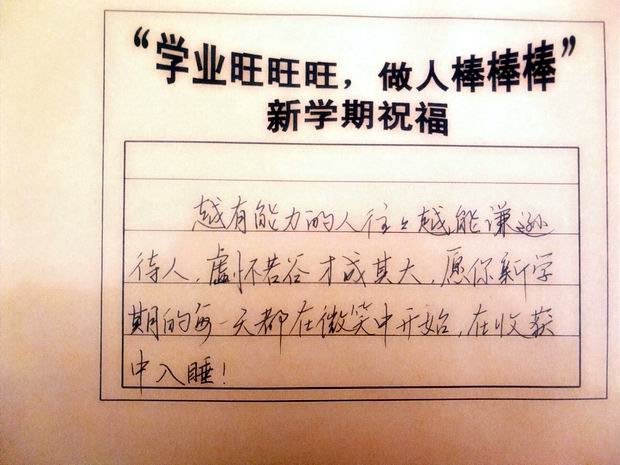 “学业旺旺旺，做人棒棒棒”
新学期祝福
越有能力的人往々越能谦逊
待人，虚怀若谷才成其大，愿你新学
期的每一天都在微笑中开始，在收获
中入睡！